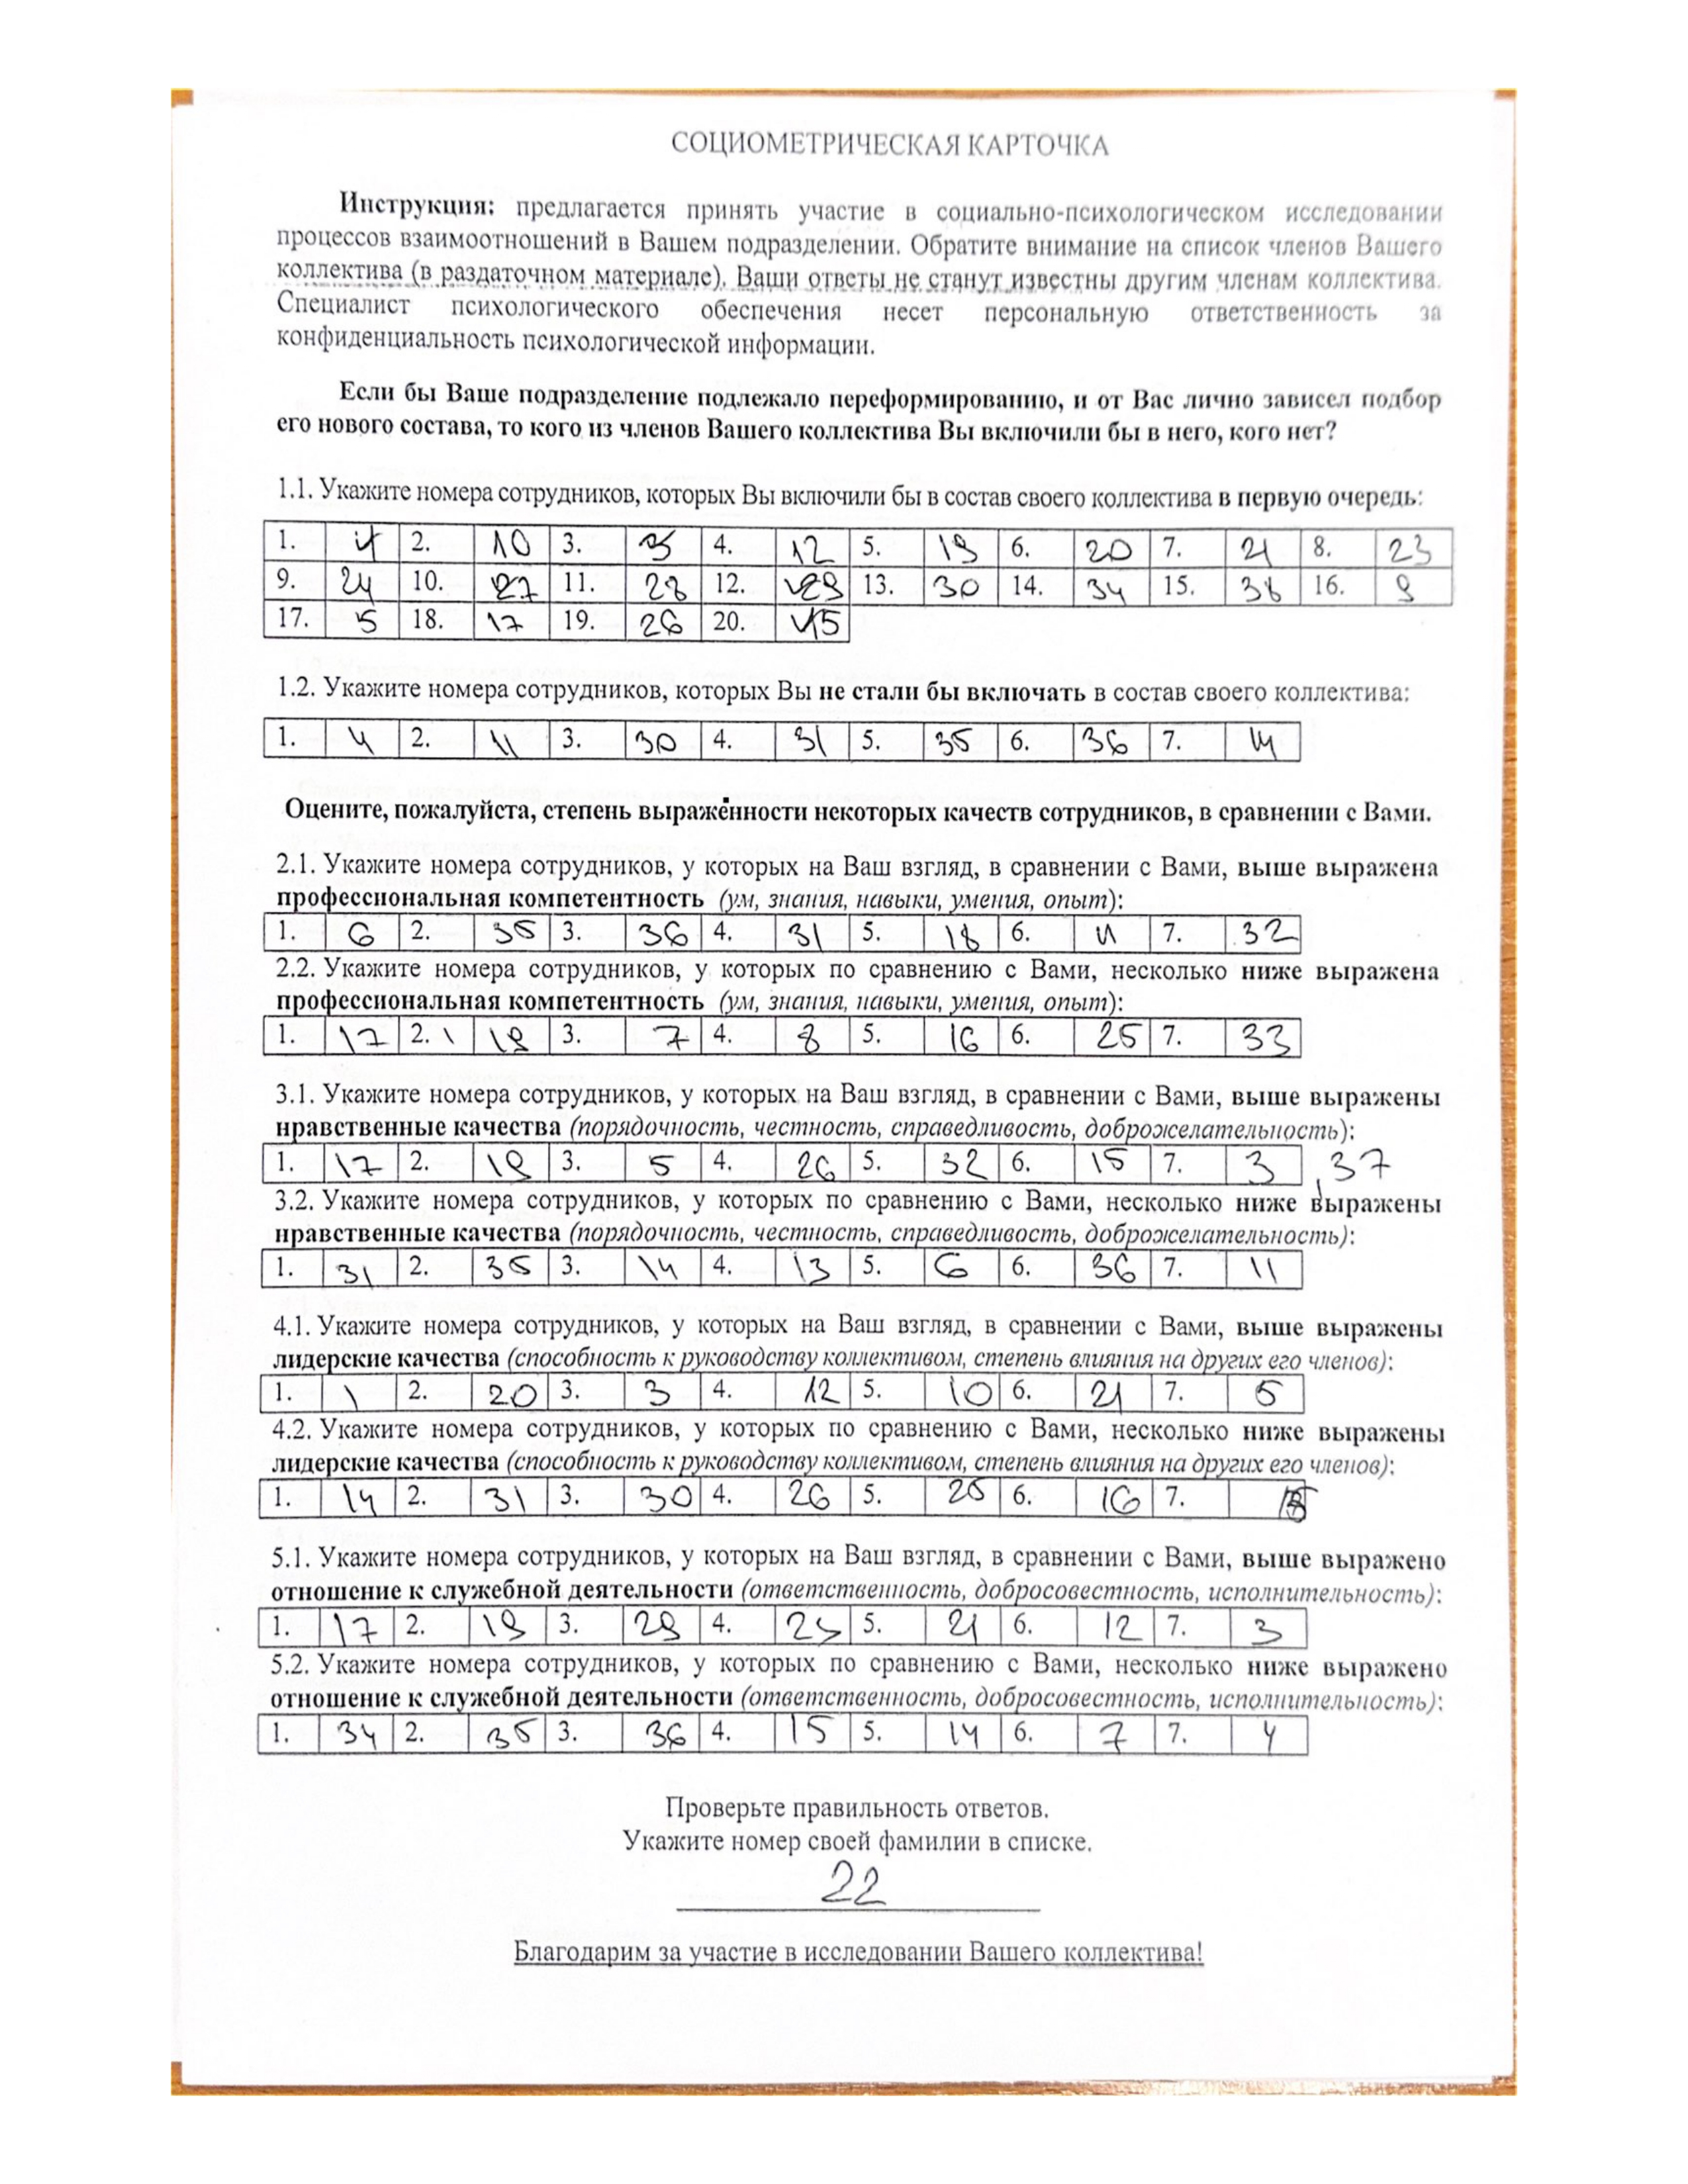 СОЦИОМЕТРИЧЕСКАЯ КАРТОЧКА
Инструкция: предлагается принять участие в социально-психологическом исследовании
процессов взаимоотношений в Вашем подразделении. Обратите внимание на список членов Вашего
коллектива (в раздаточном материале). Ваши ответы не станут известны другим членам коллектива.
Специалист психологического обеспечения несет персональную ответственность за
конфиденциальность психологической информации.
Если бы Ваше подразделение подлежало переформированию, и от Вас лично зависел подбор
его нового состава, то кого из членов Вашего коллектива Вы включили бы в него, кого нет?
1.1. Укажите номера сотрудников, которых Вы включили бы в состав своего коллектива в первую очередь:
1. 2. 10 3. 3 4. 12 5. 19 6. 20 7. 21 8. 23
9. 24 10. 27 11. 28 12. 29 13. 30 14. 34 15. 38 16. 9
17. 5 18. 17 19. 26 20. 15
1.2. Укажите номера сотрудников, которых Вы не стали бы включать в состав своего коллектива:
1. 4 2. 11 3. 30 4. 31 5. 35 6. 36 7. 14
Оцените, пожалуйста, степень выраженности некоторых качеств сотрудников, в сравнении с Вами.
2.1. Укажите номера сотрудников, у которых на Ваш взгляд, в сравнении с Вами, выше выражена
профессиональная компетентность (ум, знания, навыки, умения, опыт):
1. 6 2. 35 3. 36 4. 31 5. 18 6. 7. 32
2.2. Укажите номера сотрудников, у которых по сравнению с Вами, несколько ниже выражена
профессиональная компетентность (ум, знания, навыки, умения, опыт):
1. 17 2. 19 3. 7 4. 8 5. 16 6. 25 7. 33
3.1. Укажите номера сотрудников, у которых на Ваш взгляд, в сравнении с Вами, выше выражены
нравственные качества (порядочность, честность, справедливость, доброжелательность):
1. 17 2. 19 3. 5 4. 26 5. 32 6. 15 7. 3 , 37
3.2. Укажите номера сотрудников, у которых по сравнению с Вами, несколько ниже выражены
нравственные качества (порядочность, честность, справедливость, доброжелательность):
1. 31 2. 35 3. 14 4. 13 5. 6 6. 36 7. 11
4.1. Укажите номера сотрудников, у которых на Ваш взгляд, в сравнении с Вами, выше выражены
лидерские качества (способность к руководству коллективом, степень влияния на других его членов):
1. 1 2. 20 3. 3 4. 12 5. 10 6. 21 7. 5
4.2. Укажите номера сотрудников, у которых по сравнению с Вами, несколько ниже выражены
лидерские качества (способность к руководству коллективом, степень влияния на других его членов):
1. 14 2. 31 3. 30 4. 26 5. 25 6. 16 7.
5.1. Укажите номера сотрудников, у которых на Ваш взгляд, в сравнении с Вами, выше выражено
отношение к служебной деятельности (ответственность, добросовестность, исполнительность):
1. 17 2. 19 3. 29 4. 5. 21 6. 12 7. 3
5.2. Укажите номера сотрудников, у которых по сравнению с Вами, несколько ниже выражено
отношение к служебной деятельности (ответственность, добросовестность, исполнительность):
1. 34 2. 35 3. 36 4. 15 5. 14 6. 7 7. 4
Проверьте правильность ответов.
Укажите номер своей фамилии в списке.
22
Благодарим за участие в исследовании Вашего коллектива!